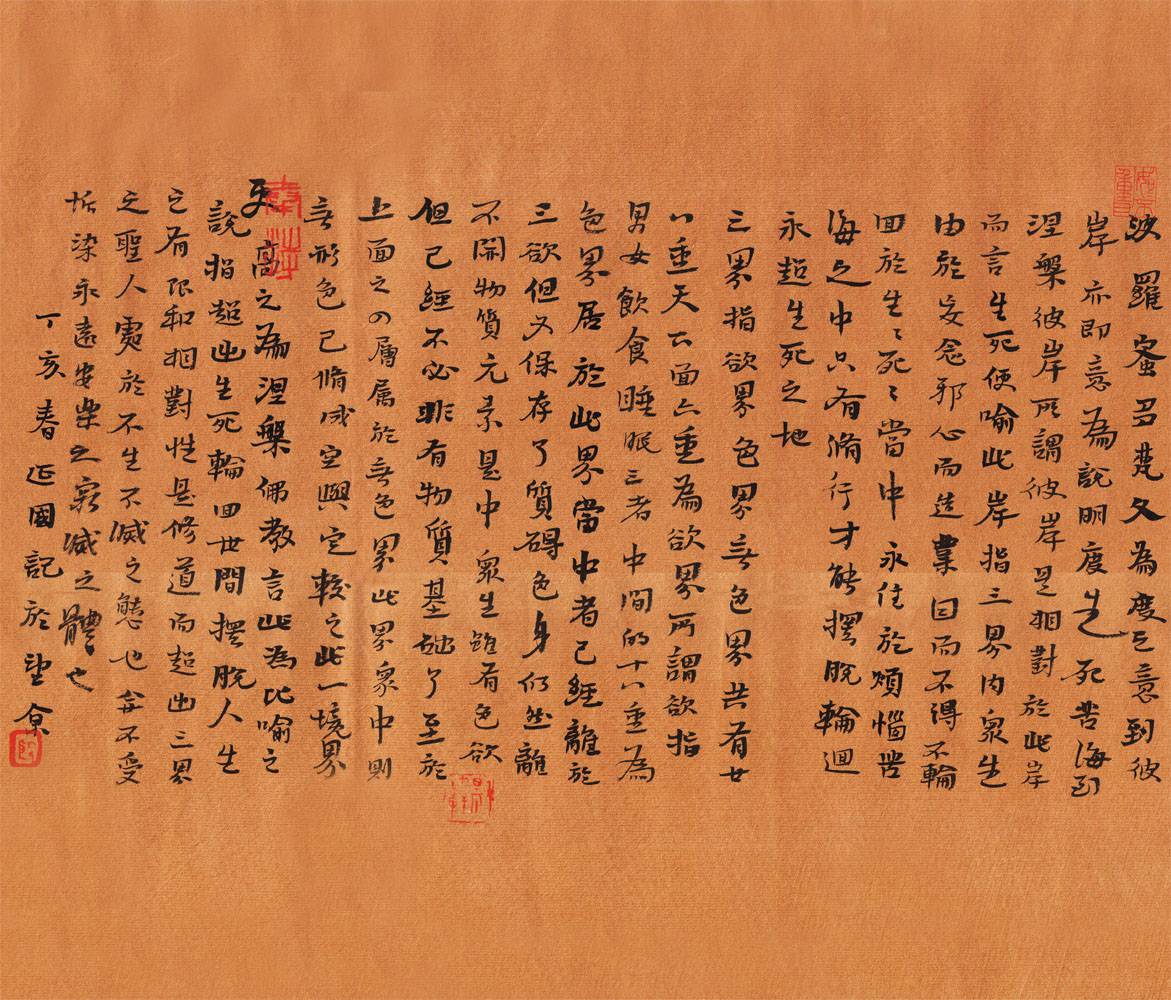 波羅蜜多梵文為度之意到彼
岸亦即意為說明度生死苦海到
涅槃彼岸所謂彼岸是相對於此岸
而言生死便喻此岸指三界內衆生
由於妄念邪心而造業因而不得不輪
回於生々死々當中永住於煩惱苦
海之中只有脩行才能擺脫輪迴
永超生死之地
三界指欲界色界無色界共有廿
八重天下面六重為欲界所謂欲指
男女飲食睡眠三者中間的十八重為
色界居於此界當中者已經離於
三欲但又保存了質碍色身仍然離
不開物質元素是中衆生雖有色欲
但已經不必非有物質基础了至於
上面之四層屬於無色界此界衆中則
無形色已脩成空與定較之此一境界
更高之為涅槃佛教言此為比喻之
說指超出生死輪回世間擺脫人生
之有限和相對性是修道而超出三界
之聖人處於不生不滅之態也并不受
垢染永遠安樂之寂滅之體也
丁亥春正國記於望京